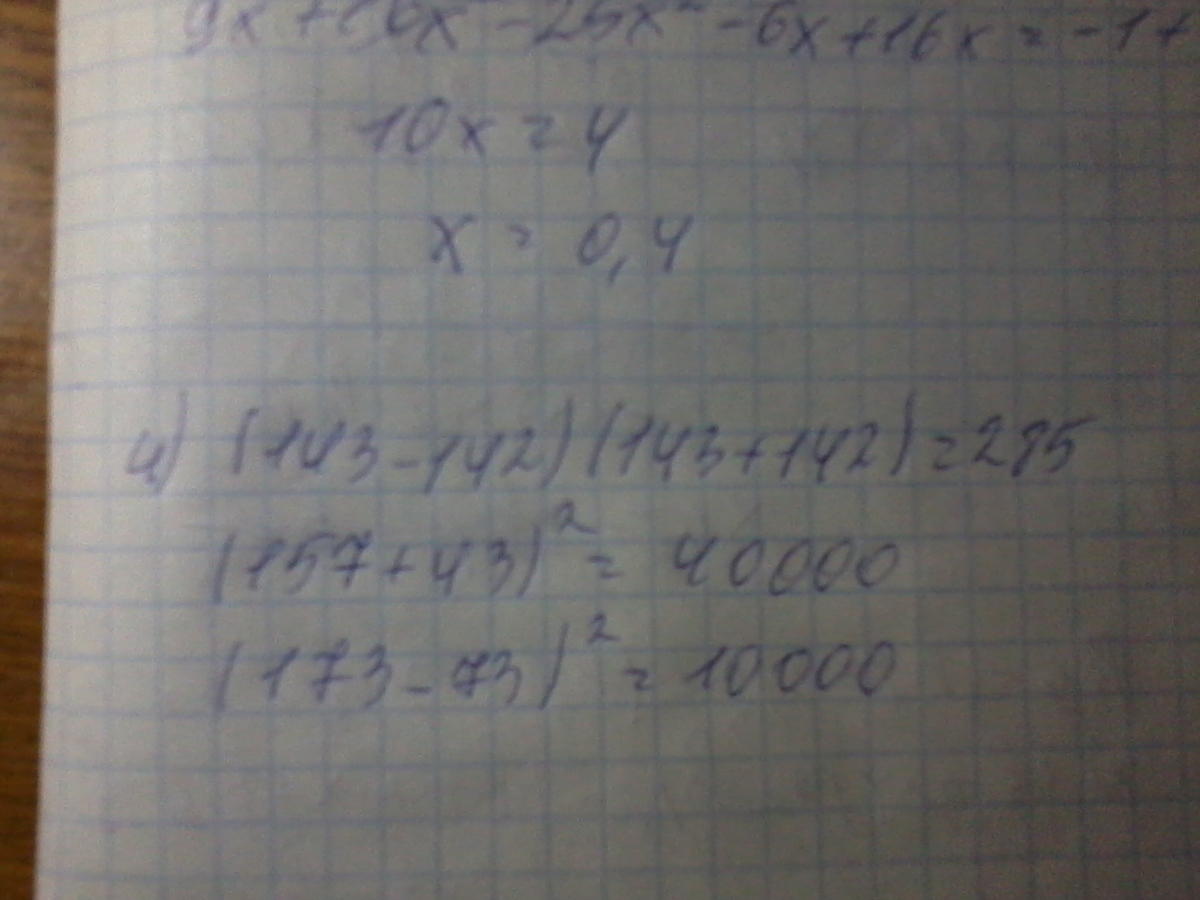 9x²+16x²-25x²-6x+16x=-1+
10x=4
x=0,4
4) (143-142)(143+142)=285
(157+43)²=40000
(173-73)²=10000